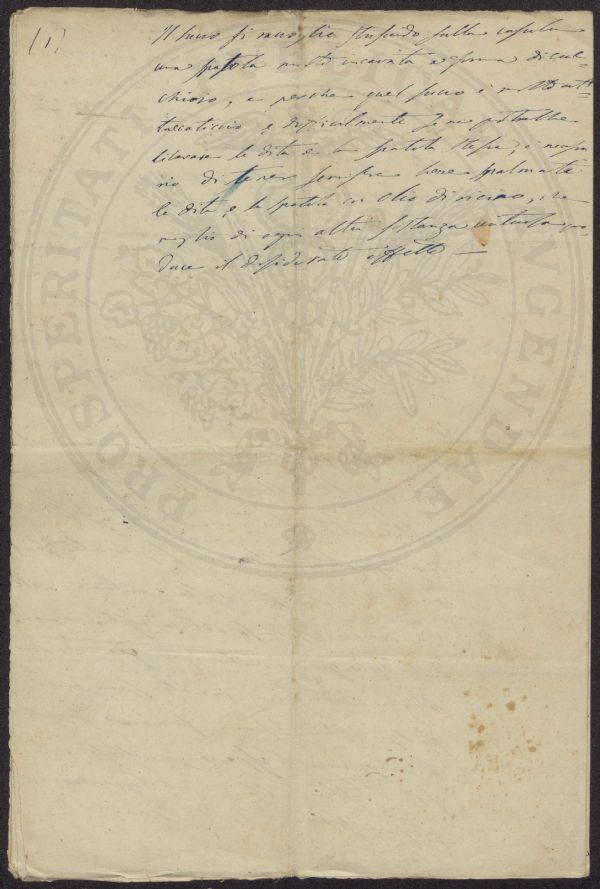 (1)
Il succo si raccoglie strusciando sulla capsula
una spatola molto incavata a forma di cuc=
chiaio, e perchè quel succo è molto att=
taccaticcio e difficilmente se ne potrebbe
liberare le dita e la spatola stessa, è necessa
rio di tener sempre bene spalmate
le dita e la spatola con olio di ricino, che
meglio di ogni altra sostanza untuosa pro
duce il desiderato effetto —
PROSPERITATI AUGENDAE